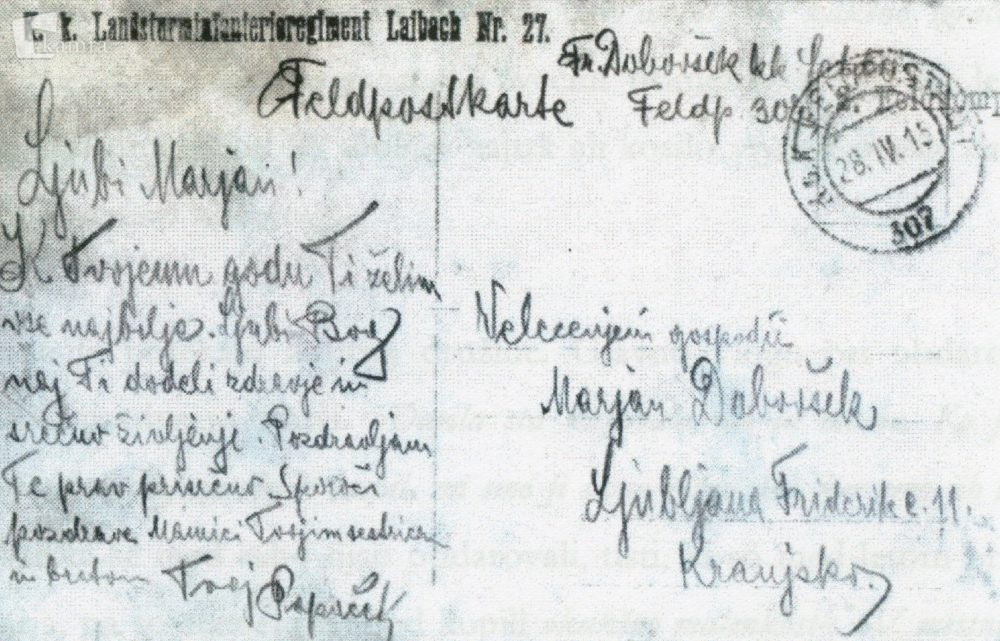 K. k. Landsturminfanterieregiment Laibach Nr. 27.
Fr. Doboršek kk
Feldpostkarte
Feldp. 307
28. IV. 15
307
Ljubi Marjan!
K Tvojemu godu Ti želim
vse najbolje. Ljubi Bog
naj Ti dodeli zdravje in
srečno življenje. Pozdravljam
Te prav prisrčno. Sporoči
pozdrave Mamici Tvojim sestricam
in bratom Tvoj
Velecenjeni gospod
Marjan Doboršek
Ljubljana Friderik c. 11.
Kranjsko.